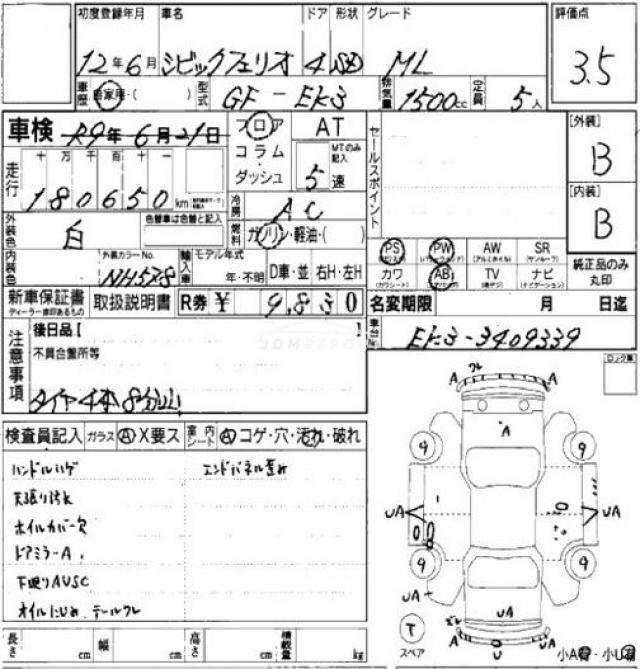 初度登録年月 車名 ドア 形状 グレード 評価点
12年6月 シビックフェリオ 4 SD ML 3.5
車歴 自家用・( ) 型式 GF-EK3 排気量 1500cc 定員 5人
車検 R9年6月21日 フロア AT セールスポイント [外装] B
コラム MTのみ記入
ダッシュ 5速
走行 十万千百十一
180650km 冷房 AC [内装] B
外装色 白 色替車は色替と記入 燃料 ガソリン・軽油・( )
PS PW AW SR 純正品のみ丸印
内装色 外装カラーNo. NH578 輸入車 モデル年式 年・不明 D車・並 右H・左H カワ AB TV ナビ
新車保証書 取扱説明書 R券 ¥ 9,830 名変期限 月 日迄
ディーラー印あるもの
注意事項 後日品[ ] 車台No. EK3-3409339
不具合箇所等
JDMEXPO
タイヤ4本8分山
検査員記入 ガラス A X要ス 室内シート A コゲ・穴・汚れ・破れ
ハンドルハゲ エンドパネル歪み
天張り汚れ
ホイルカバー欠
ドアミラーA
下廻りAUSC
オイルにじみ、テールワレ
長さ cm 幅 cm 高さ cm 積載量 kg
ロック車
ワレ
A A
A
9 9
UA UA
9 9
UA
UA
T スペア
A U UA
小A有・小U有